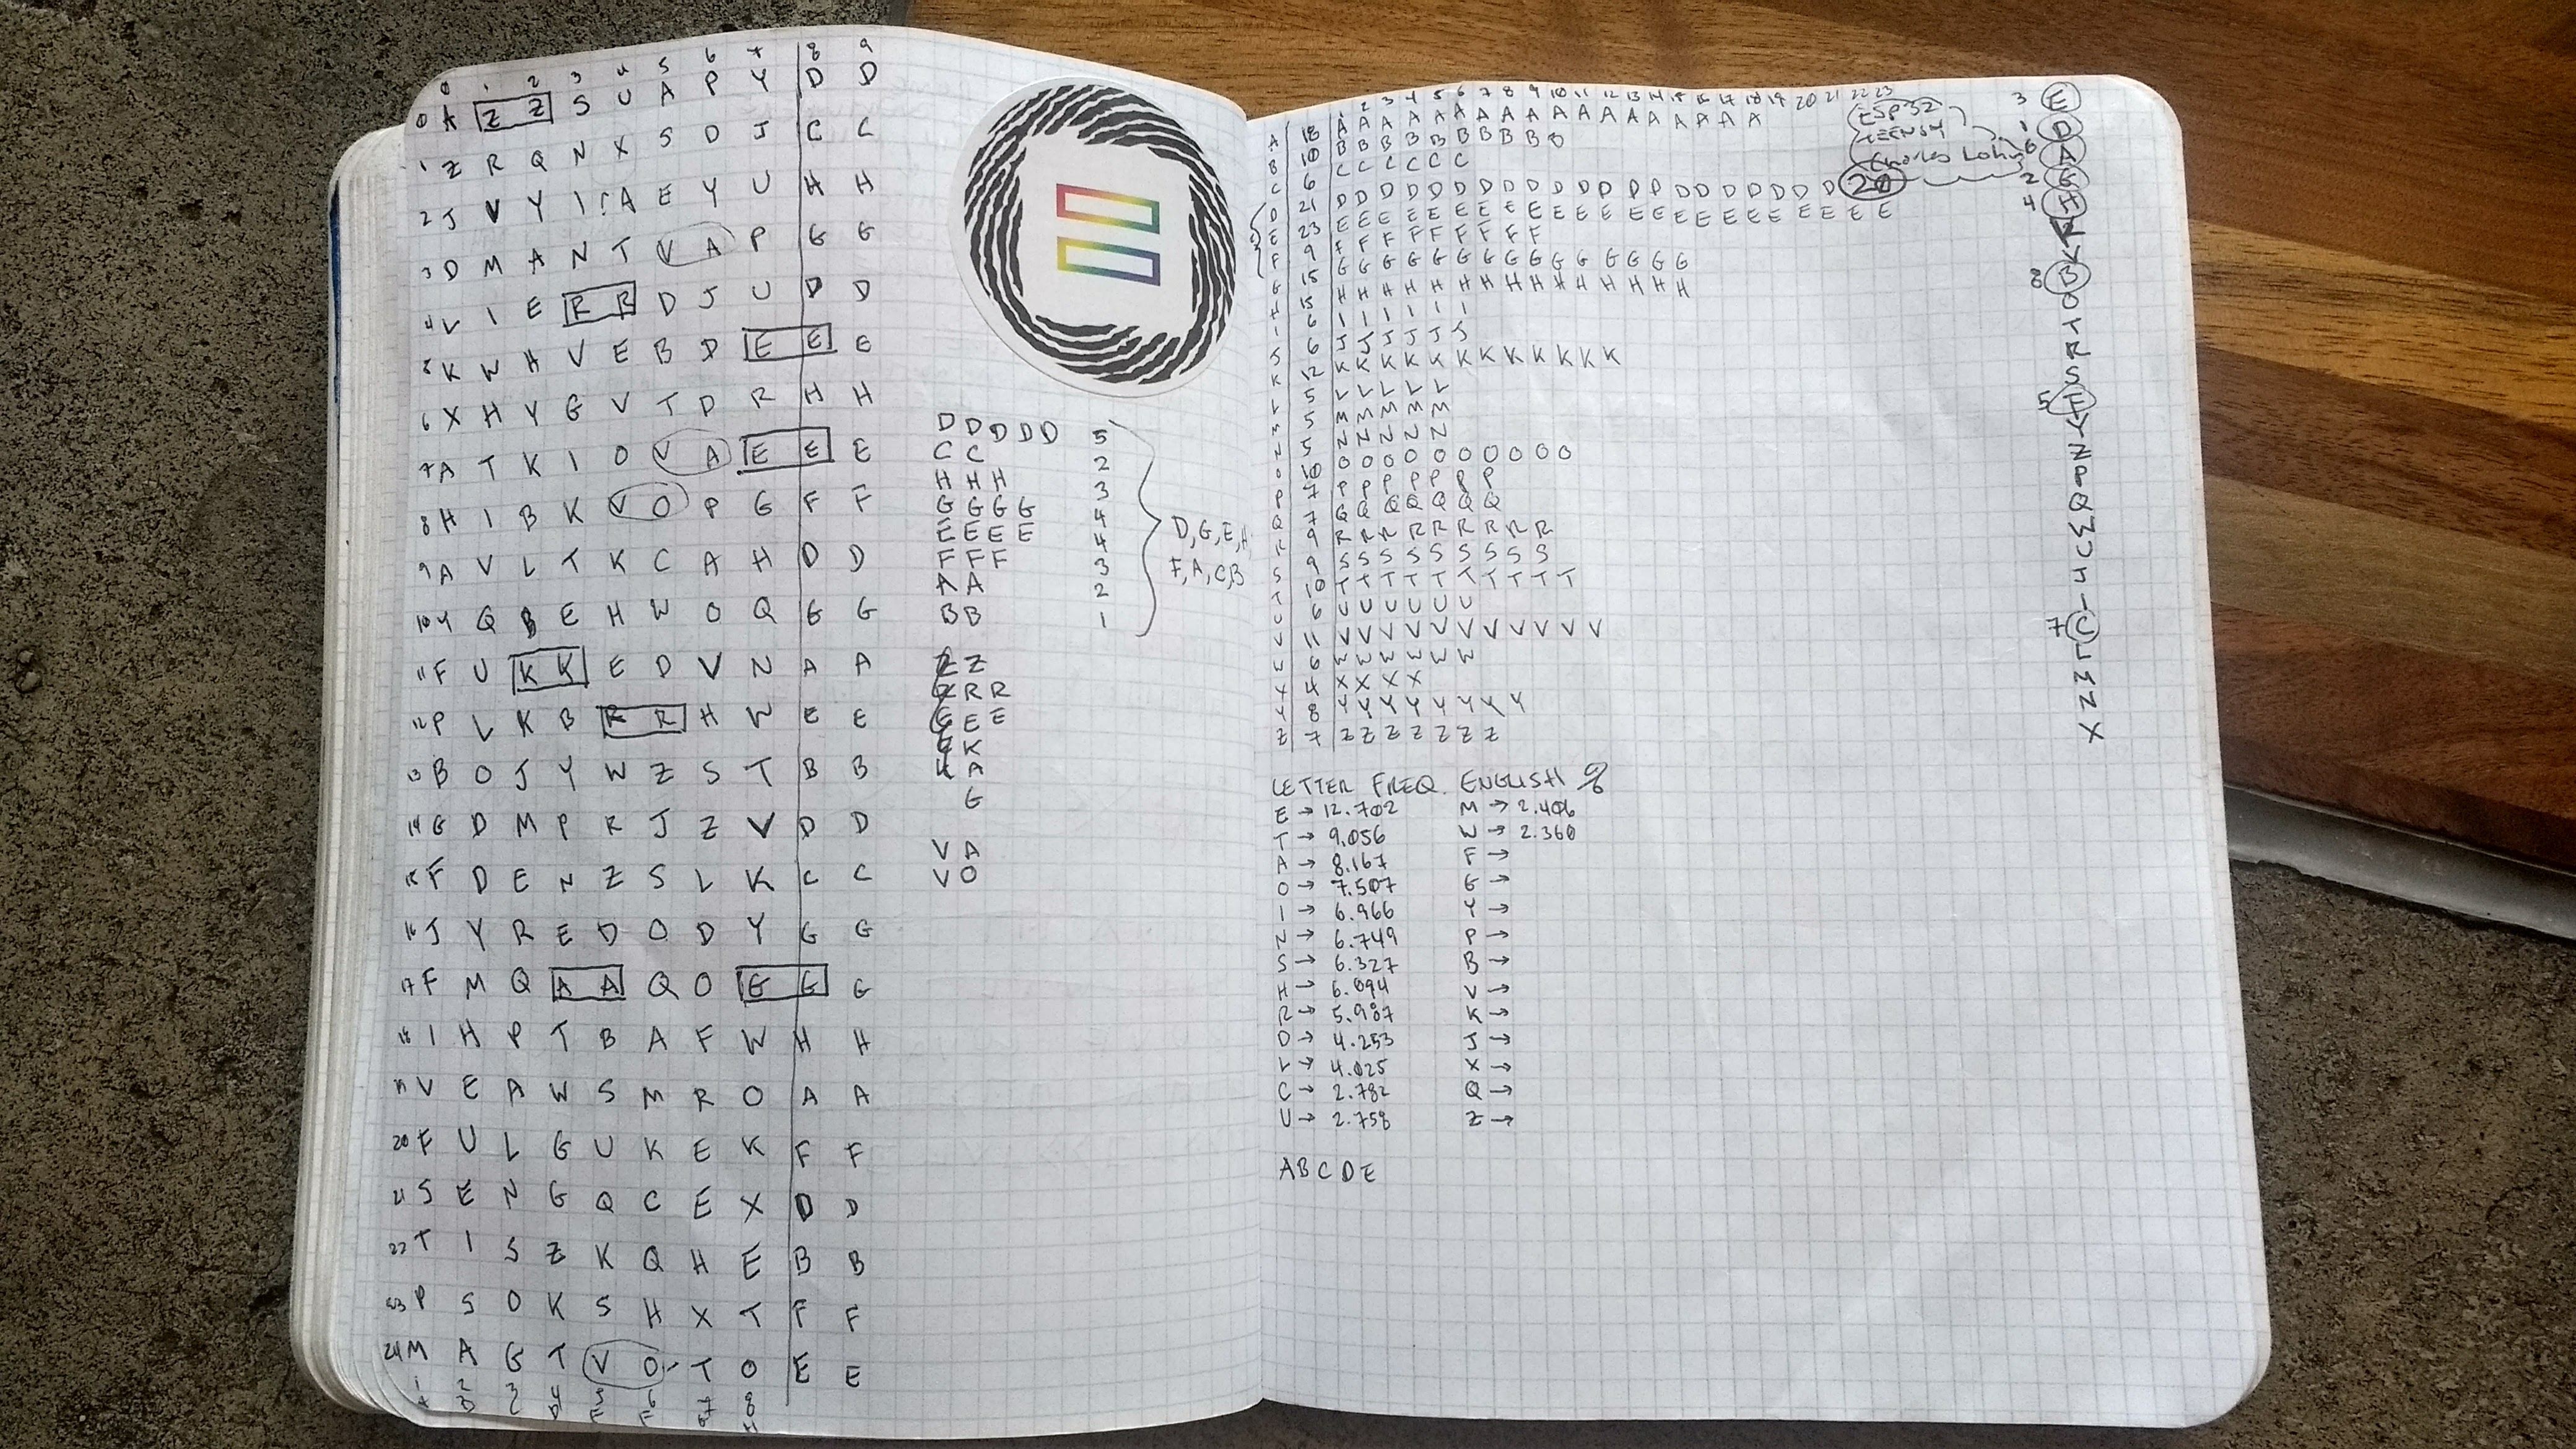 0 1 2 3 4 5 6 7 8 9
0 A Z Z S U A P Y D D
1 Z R Q N X S D J C C
2 J V Y I A E Y U H H
3 D M A N T V A P G G
4 L I E R R D J U D D
5 K W H V E B D E E E
6 X H Y G V T D R H H
7 A T K I O V A E E E
8 H I B K V O P G F F
9 A V L T K C A H D D
10 Y Q B E H W O Q G G
11 F U K K E D V N A A
12 P L K B R R H W E E
13 B O J Y W Z S T B B
14 G D M P R J Z V D D
15 F D E N Z S L K C C
16 J Y R E D O D Y G G
17 F M Q A A Q O G G G
18 I H P T B A F W H H
19 V E A W S M R O A A
20 F U L G U K E K F F
21 S E N G Q C E X D D
22 T I S Z K Q H E B B
23 P S O K S H X T F F
24 M A G T V O T O E E
1 2 3 4 5 6 7 8
D D D D D 5
C C 2
H H H 3
G G G G 4
E E E E 4
F F F 3
A A 2
B B 1
D, G, E, H,
F, A, C, B
Z
R R
E E
K
A
G
V A
V O
2 3 4 5 6 7 8 9 10 11 12 13 14 15 16 17 18 19 20 21 22 23
A 18 A A A A A A A A A A A A A A A A A A
B 10 B B B B B B B B B B
C 6 C C C C C C
D 21 D D D D D D D D D D D D D D D D D D D D D 20
E 23 E E E E E E E E E E E E E E E E E E E E E E E
F 9 F F F F F F F F F
G 15 G G G G G G G G G G G G G G G
H 15 H H H H H H H H H H H H H H H
I 6 I I I I I I
J 6 J J J J J J
K 12 K K K K K K K K K K K K
L 5 L L L L L
M 5 M M M M M
N 5 N N N N N
O 10 O O O O O O O O O O
P 7 P P P P P P P
Q 7 Q Q Q Q Q Q Q
R 9 R R R R R R R R R
S 9 S S S S S S S S S
T 10 T T T T T T T T T T
U 6 U U U U U U
V 11 V V V V V V V V V V V
W 6 W W W W W W
X 4 X X X X
Y 8 Y Y Y Y Y Y Y Y
Z 7 Z Z Z Z Z Z Z
ESP32
TEENSY
Charles Lohr
3 E
1 D
6 A
2 G
4 H
K
V
8 B
O
T
R
S
5 F
Y
Z
P
Q
W
U
J
I
7 C
L
M
N
X
LETTER FREQ. ENGLISH %
E → 12.702 M → 2.406
T → 9.056 W → 2.360
A → 8.167 F →
O → 7.507 G →
I → 6.966 Y →
N → 6.749 P →
S → 6.327 B →
H → 6.094 V →
R → 5.987 K →
D → 4.253 J →
L → 4.025 X →
C → 2.782 Q →
U → 2.758 Z →
A B C D E